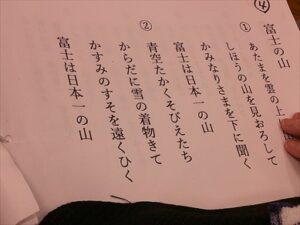 ④
富士の山
①
あたまを雲の上
しほうの山を見おろして
かみなりさまを下に聞く
富士は日本一の山
②
青空たかくそびえたち
からだに雪の着物きて
かすみのすそを遠くひく
富士は日本一の山